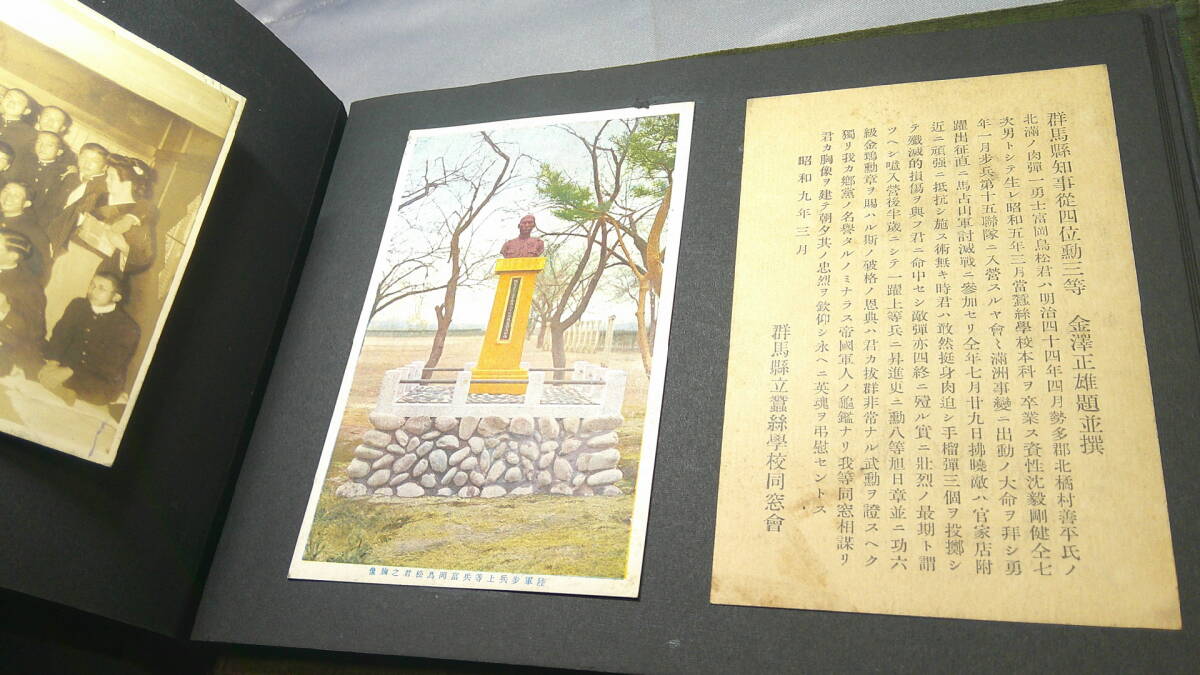 群馬縣知事從四位勳三等　金澤正雄題並撰
北滿ノ肉彈一勇士富岡鳥松君ハ明治四十四年四月勢多郡北橘村善平氏ノ
次男トシテ生レ昭和五年三月當蠶絲學校本科ヲ卒業ス資性沈毅剛健仝七
年一月步兵第十五聯隊ニ入營スルヤ會〻滿洲事變ニ出動ノ大命ヲ拜シ勇
躍出征直ニ馬占山軍討滅戰ニ參加セリ仝年七月廿九日拂曉敵ハ官家店附
近ニ頑强ニ抵抗シ施ス術無キ時君ハ敢然挺身肉迫シ手榴彈三個ヲ投擲シ
テ殲滅的損傷ヲ與フ君ニ命中セシ敵彈亦四終ニ殪ル實ニ壯烈ノ最期ト謂
ツヘシ嗟入營後半歲ニシテ一躍上等兵ニ昇進更ニ勳八等旭日章並ニ功六
級金鵄勳章ヲ賜ハル斯ノ破格ノ恩典ハ君カ拔群非常ナル武勳ヲ證スヘク
獨リ我カ鄕黨ノ名譽タルノミナラス帝國軍人ノ龜鑑ナリ我等同窓相謀リ
君カ胸像ヲ建テ朝夕其ノ忠烈ヲ欽仰シ永ヘニ英魂ヲ弔慰セントス
昭和九年三月
群馬縣立蠶絲學校同窓會
陸軍步兵上等兵富岡鳥松君之胸像